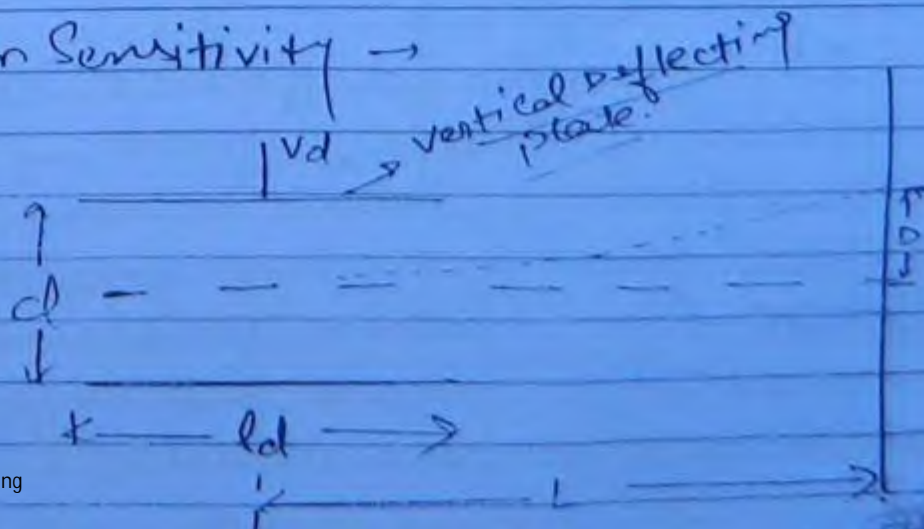 n Sensitivity →
Vd
Vertical Deflecting
plate.
d
D
ld
L
ng